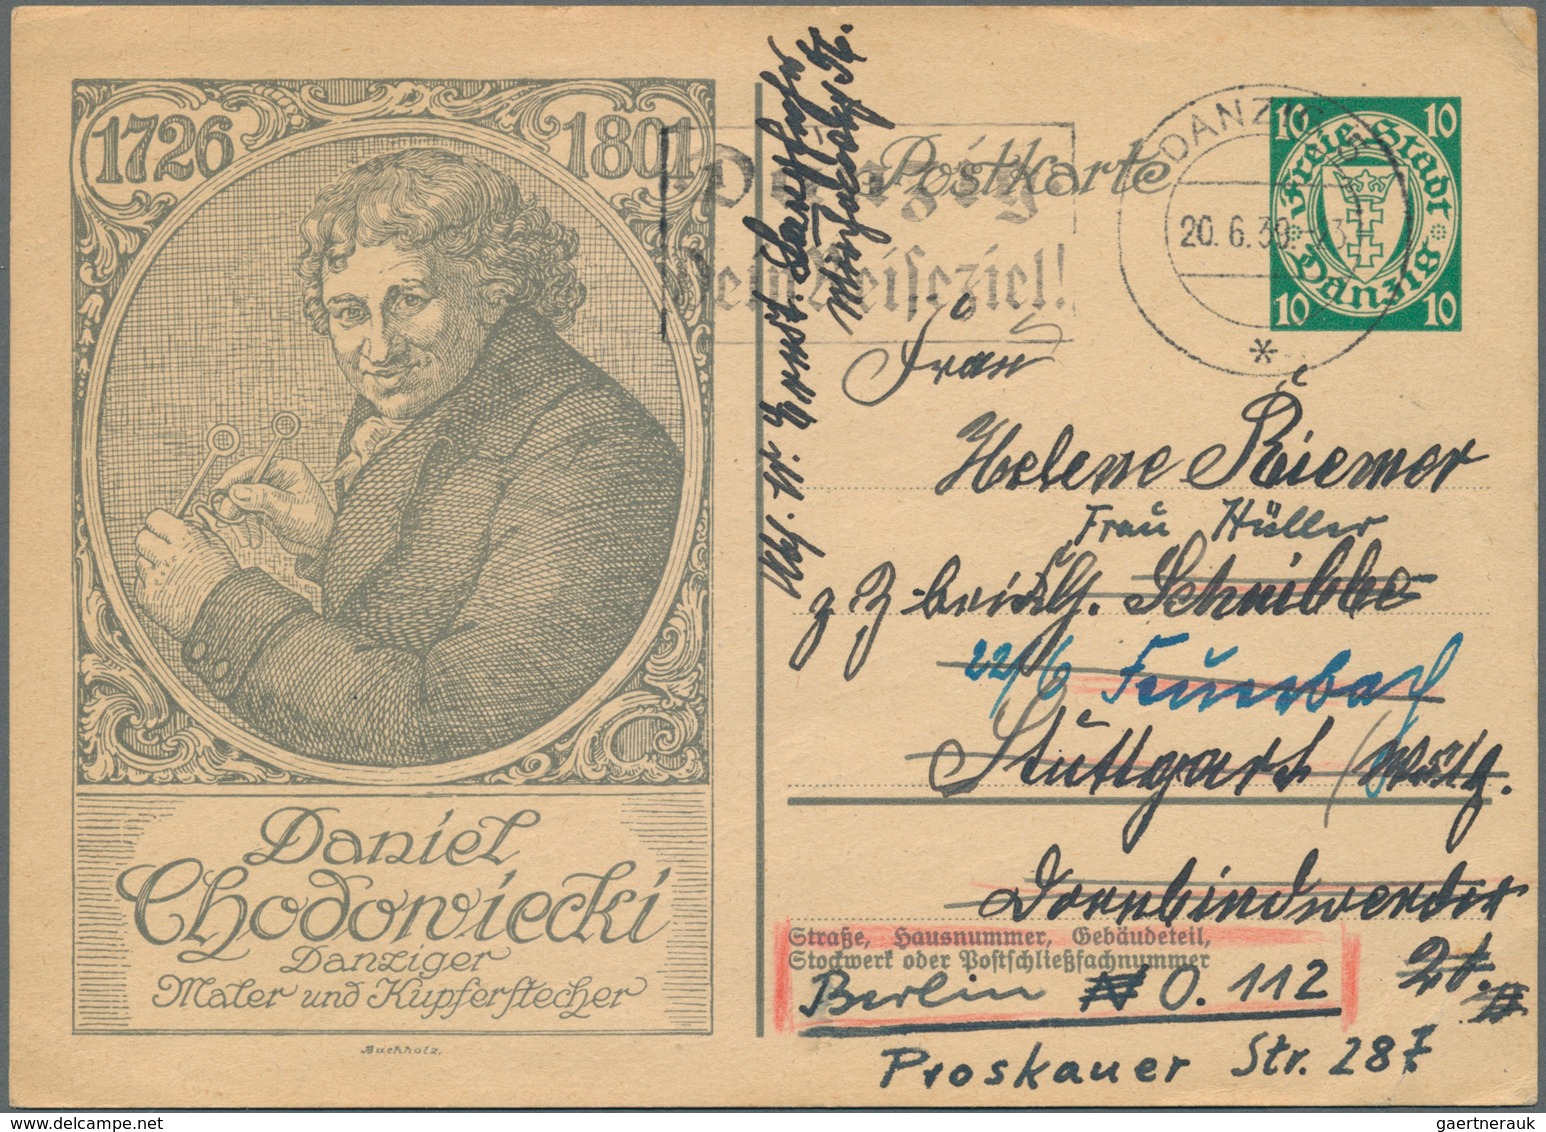 1726 1801
Daniel
Chodowiecki
Danziger
Maler und Kupferstecher
Buchholz.
Postkarte
Danzig
Dein Reiseziel!
DANZIG 5
20. 6. 39.
*
10 10
Freie Stadt
Danzig
10 10
Ernst
Frau
Helene Riemer
Frau Hüller
z. Z.
22/6 Feuerbach
Stuttgart
Straße, Hausnummer, Gebäudeteil,
Stockwerk oder Postschließfachnummer
Berlin O. 112
Proskauer Str. 28
gaertnerauk